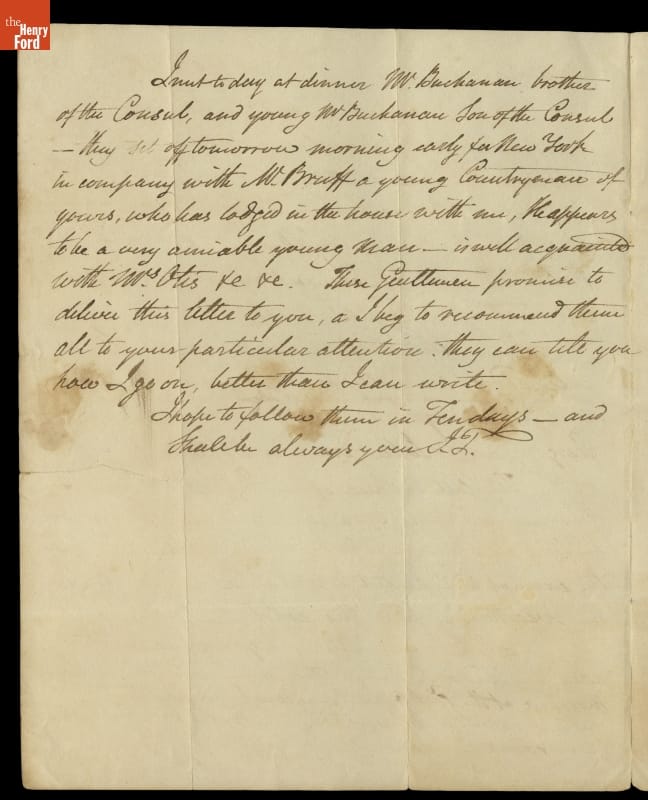 the
Henry
Ford
I met to day at dinner Mr. Buchanan brother
of the Consul, and young Mr Buchanan Son of the Consul
— they set off tomorrow morning early for New York
in company with Mr. Bruff a young Countryman of
yours, who has lodged in the house with me, He appears
to be a very amiable young man — is well acquainted
with Mrs. Otis &c &c. These Gentlemen promise to
deliver this letter to you, & I beg to recommend them
all to your particular attention: they can tell you
how I go on, better than I can write.
I hope to follow them in Ten days — and
Shall be always yours